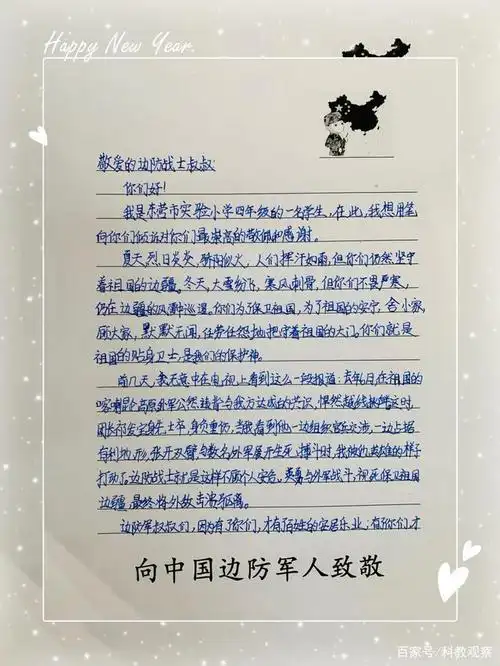 Happy New Year.
敬爱的边防战士叔叔:
你们好!
我是东营市实验小学四年级的一名学生,在此,我想用笔
向你们倾诉对你们最崇高的敬佩和感谢。
夏天,烈日炎炎,骄阳似火,人们挥汗如雨,但你们仍然坚守
着祖国的边疆。冬天,大雪纷飞,寒风刺骨,但你们不畏严寒,
仍在边疆的风雪中巡逻。你们为了保卫祖国,为了祖国的安宁,舍小家,
顾大家,默默无闻,任劳任怨地把守着祖国的大门。你们就是
祖国的贴身卫士,是我们的保护神。
前几天,我无意中在电视上看到这么一段报道:去年6月,在祖国的
喀喇昆仑高原外军公然违背与我方达成的共识,悍然越线挑衅这时
团长祁发宝身先士卒,身负重伤,当我看到他一边组织官兵交涉,一边占据
有利地形,张开双臂与数名外军展开生死搏斗时,我被他英雄的样子
打动了。边防战士就是这样不顾个人安危。英勇与外军战斗,视死保卫祖国
边疆,最终将外敌击溃驱离。
边防军叔叔们,因为有了你们,才有百姓的安居乐业;有你们才
向中国边防军人致敬
百家号/科教观察